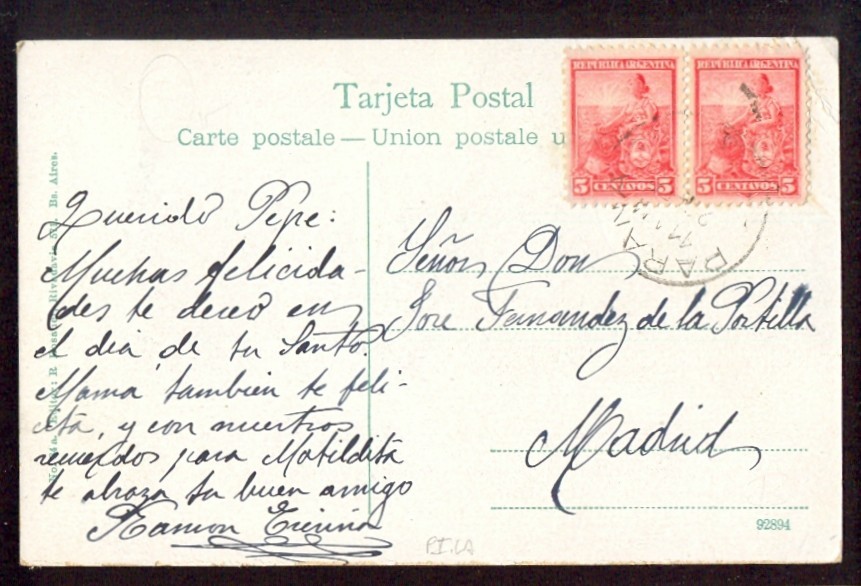 Tarjeta Postal
Carte postale — Union postale u
REPÚBLICA ARGENTINA
5 CENTAVOS 5
REPÚBLICA ARGENTINA
5 CENTAVOS 5
PARA
Bs. Aires.
Querido Pepe:
Muchas felicida-
des te deseo en
el dia de tu Santo.
Mama tambien te feli-
cita, y con nuestros
recuerdos para Matildita
te abraza tu buen amigo
Ramon
Señor Don
Jose Fernandez de la Portilla
Madrid
92894